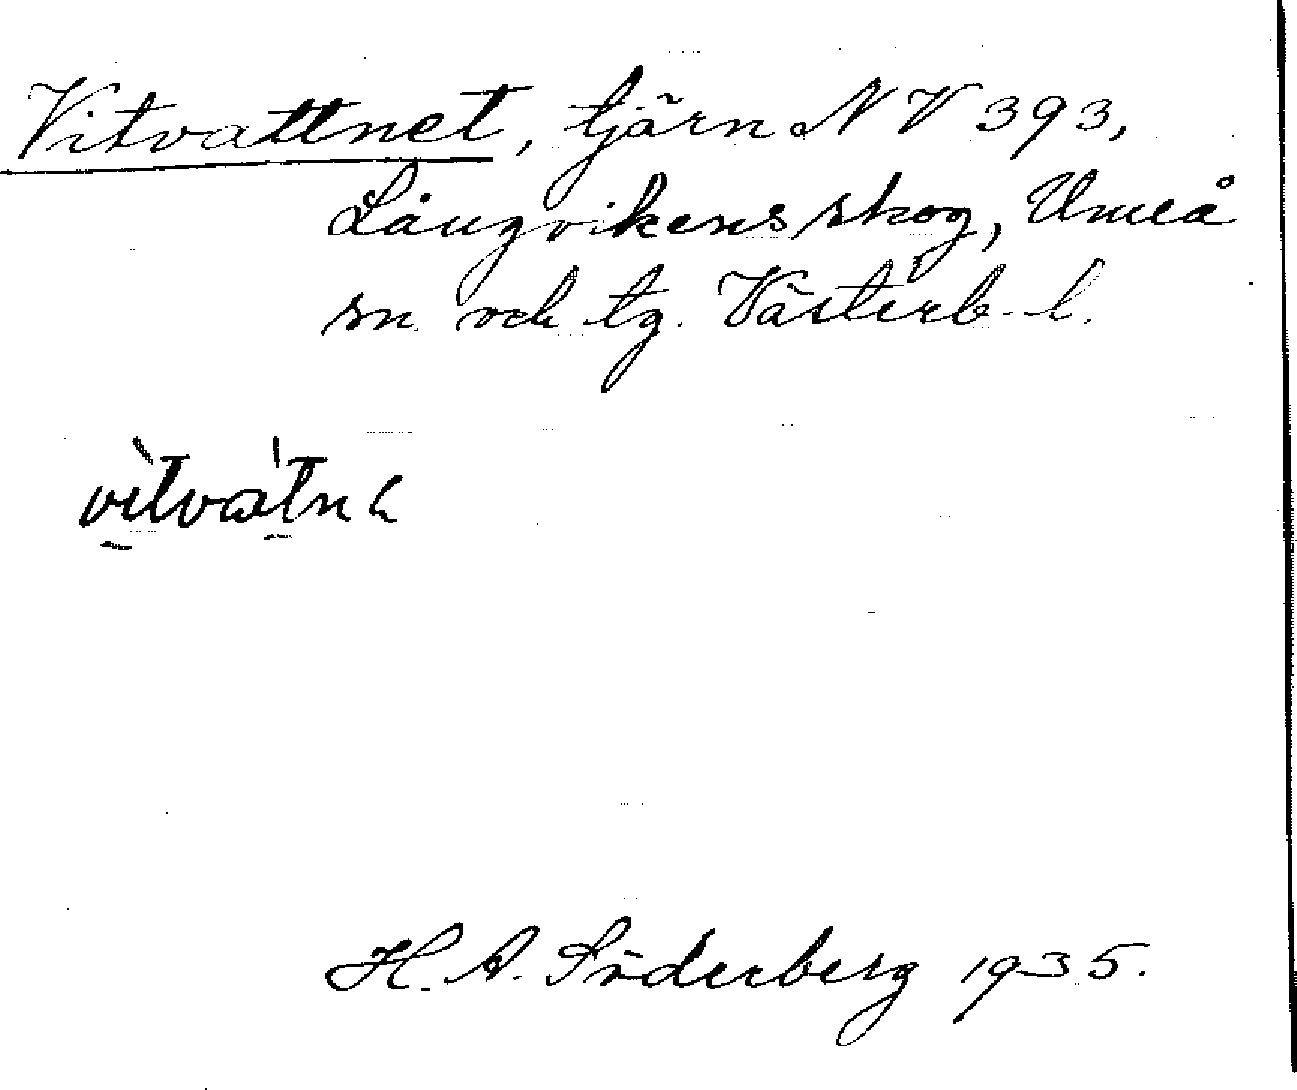 Vitvattnet, tjärn NV 393,
Långvikens skog, Umeå
sn och tg. Västerb. l.
vi̱tva̱tnh
H. A. Söderberg 1935.